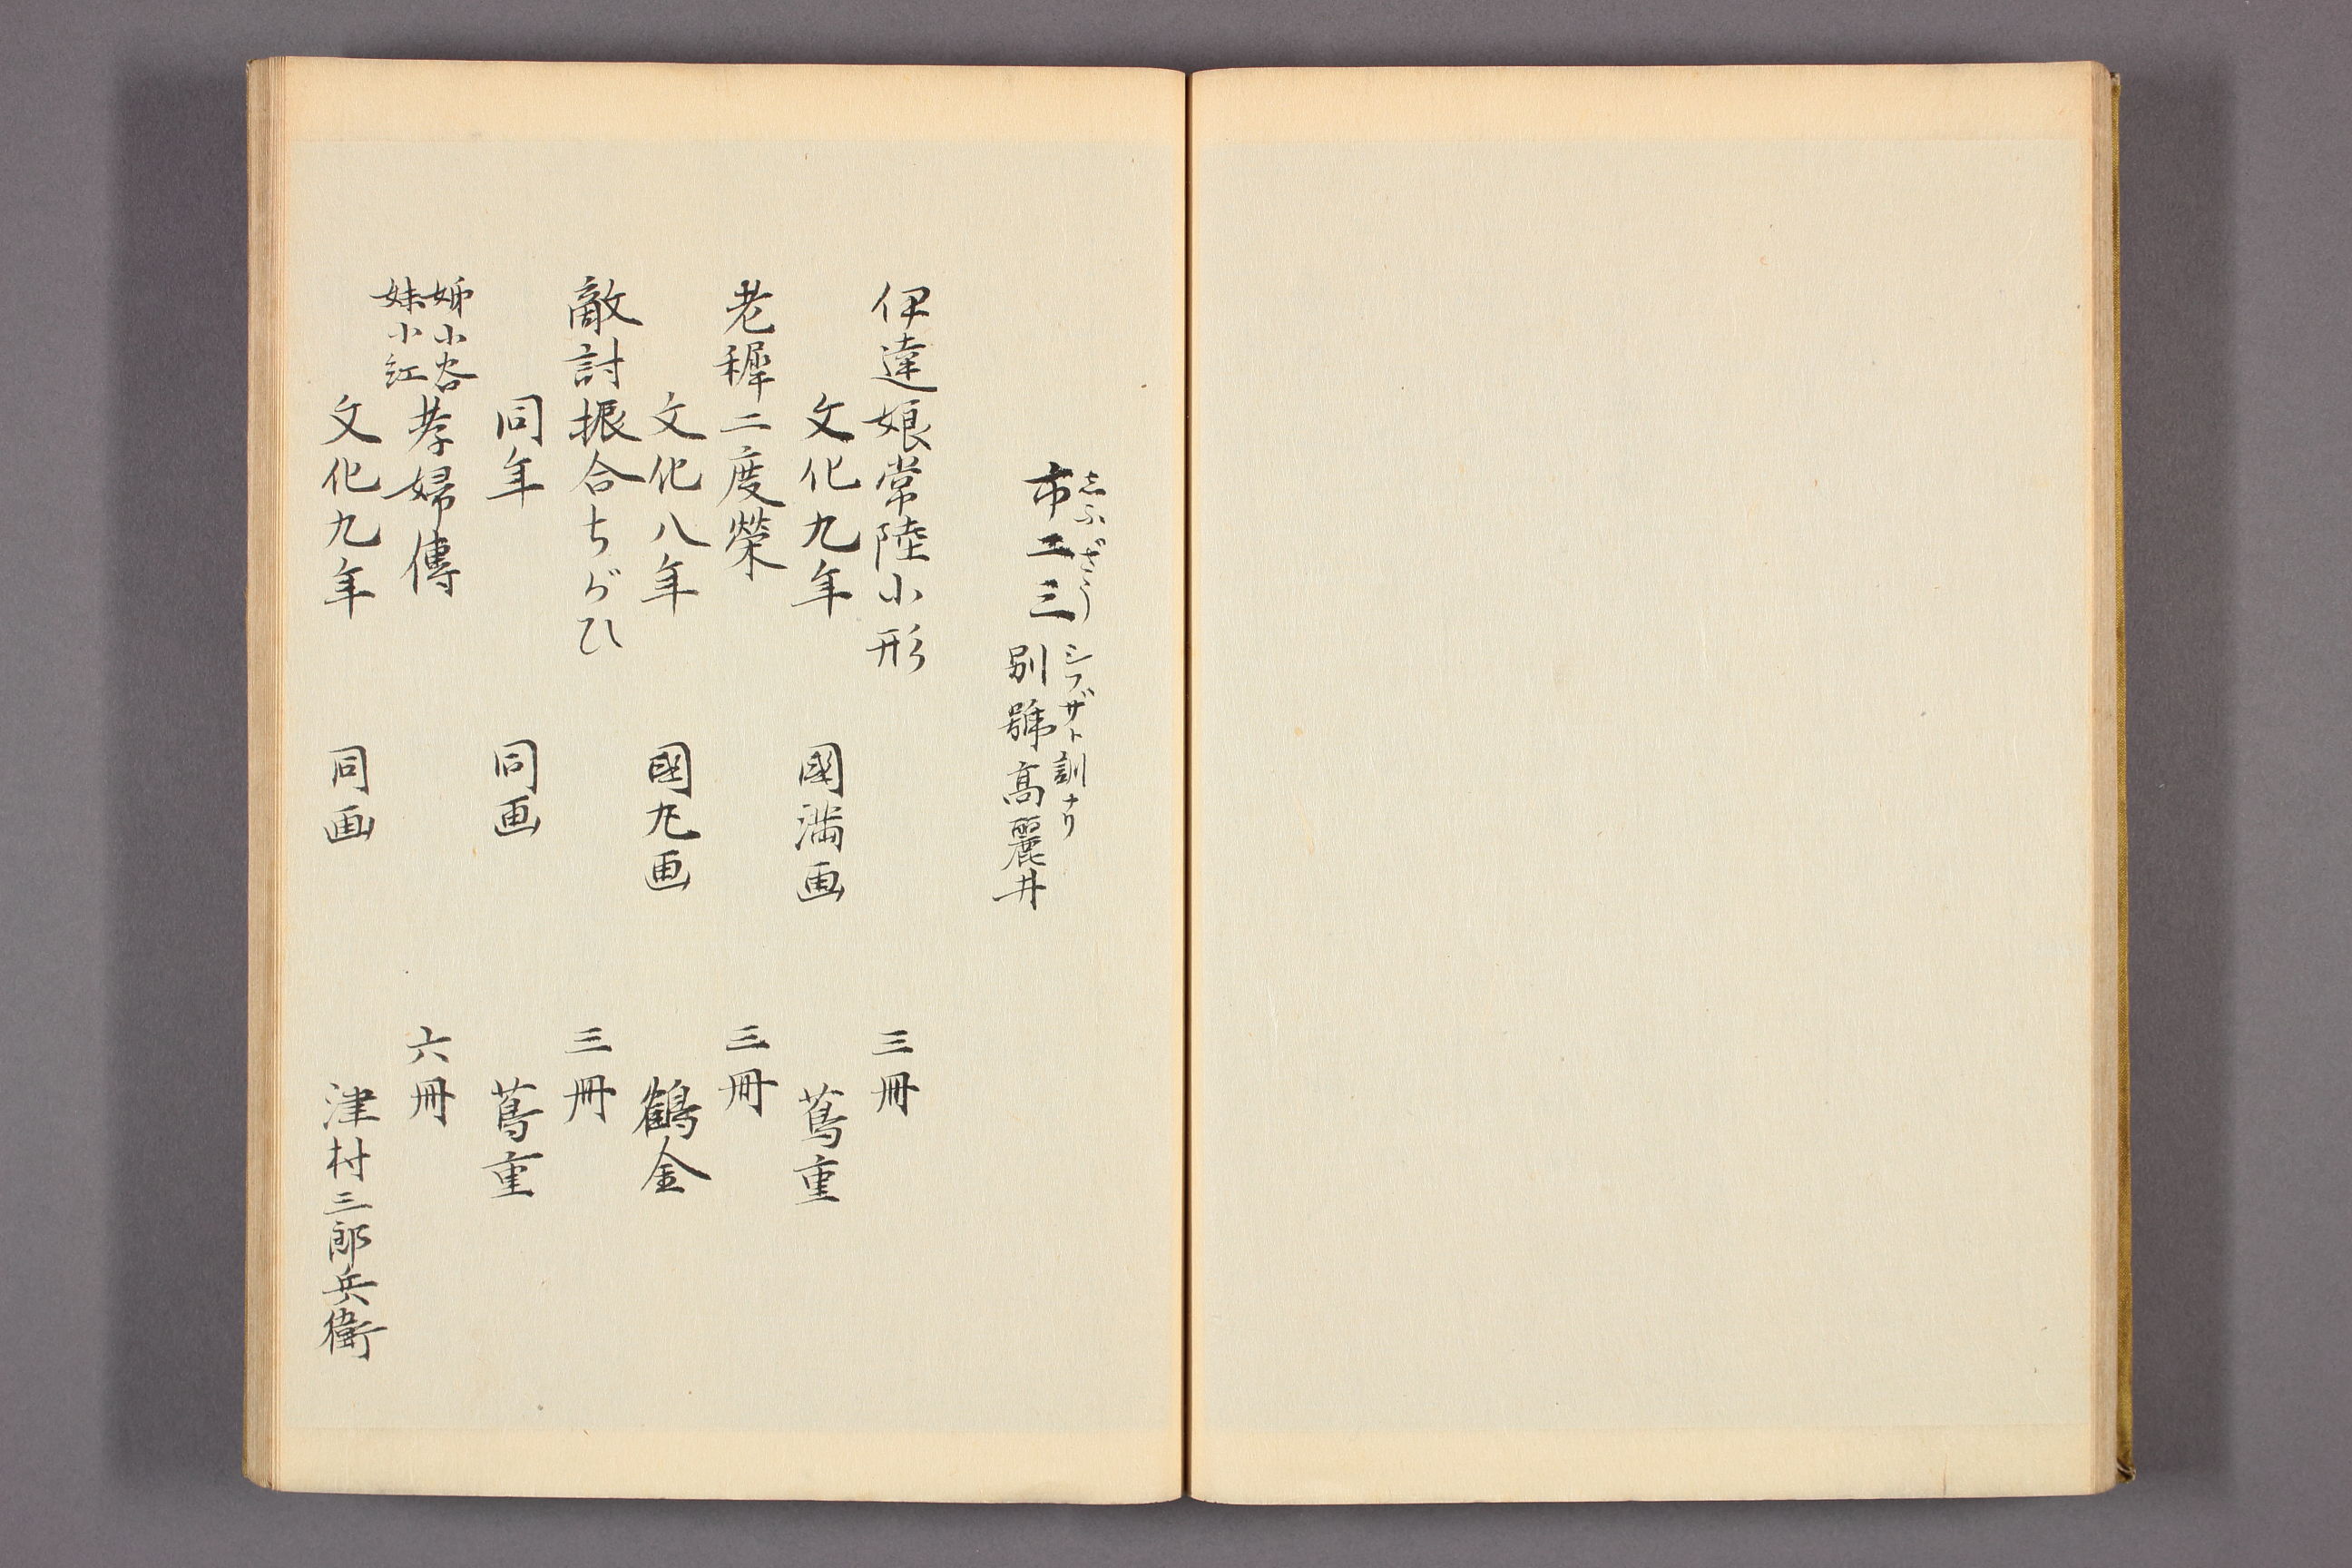 しふざう
市二三
シブザト訓ナリ
別號高麗井
伊達娘常陸小形 三冊
文化九年 國満画 蔦重
老樨二度榮 三冊
文化八年 國丸画 鶴金
敵討振合ちがひ 三冊
同年 同画 蔦重
姉小谷
妹小紅
孝婦傳 六冊
文化九年 同画 津村三郎兵衛